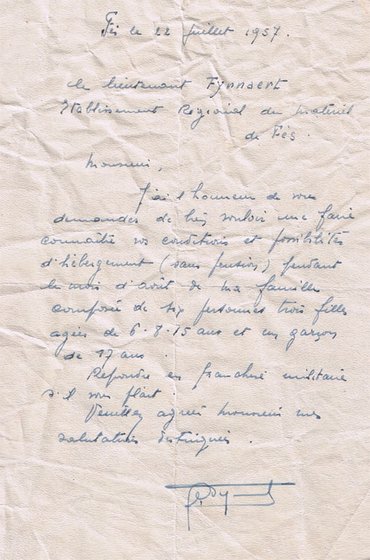 Fès le 22 juillet 1957.
Le lieutenant Fynnaert
Etablissement Régional du matériel
de Fès.
Monsieur,
J'ai l'honneur de vous
demander de bien vouloir me faire
connaître vos conditions et possibilités
d'hébergement (sans pension) pendant
le mois d'Août de ma famille
composée de six personnes trois filles
agées de 6-8-15 ans et un garçon
de 17 ans.
Répondre en franchise militaire
s.il vous plait
Veuillez agréer monsieur mes
salutations distinguées.